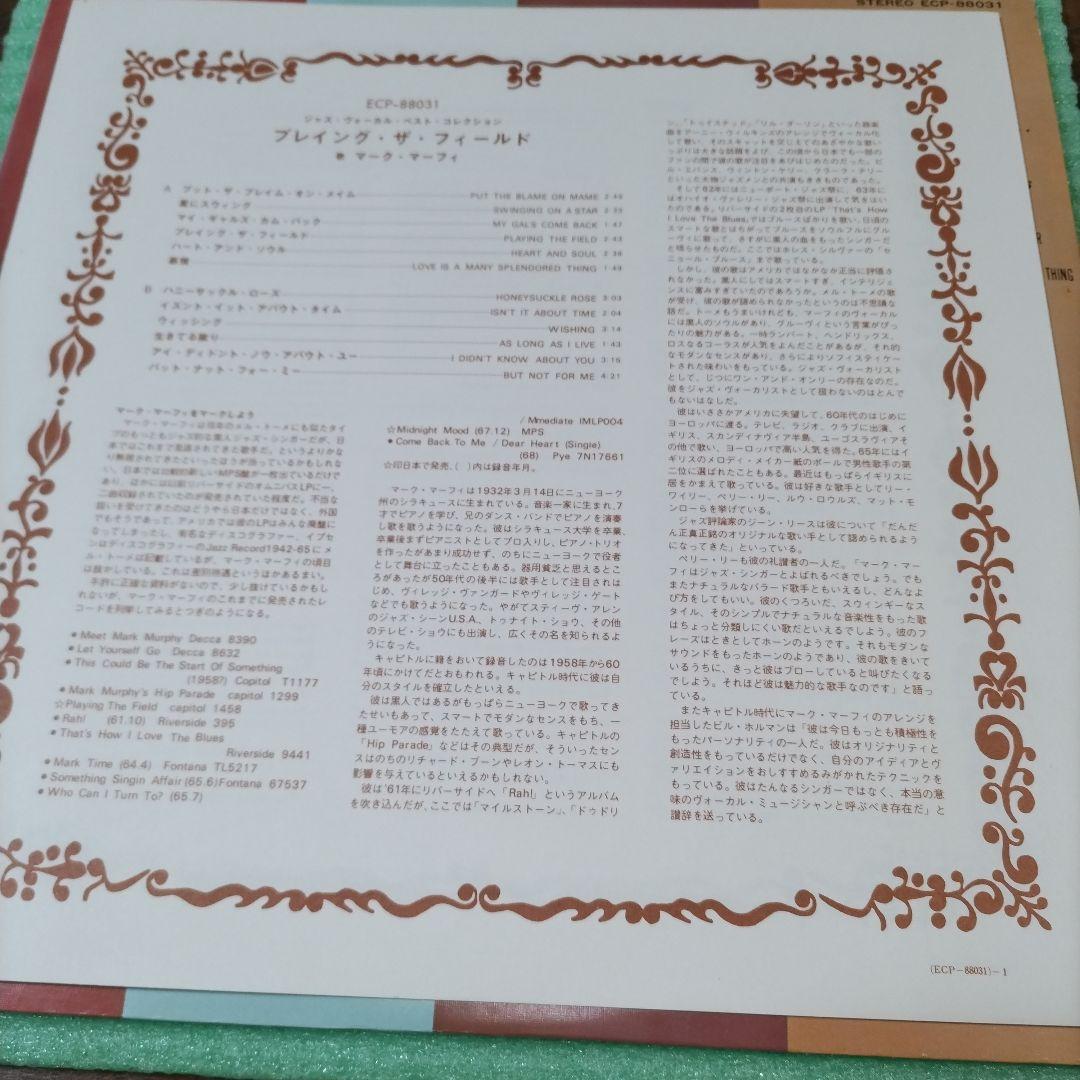 STEREO ECP-88031
ECP-88031
ジャズ・ヴォーカル・ベスト・コレクション
プレイング・ザ・フィールド
歌 マーク・マーフィ
A プット・ザ・ブレイム・オン・メイム PUT THE BLAME ON MAME 2:45
星にスウィング SWINGING ON A STAR 2:33
マイ・ギャルズ・カム・バック MY GALS COME BACK 1:47
プレイング・ザ・フィールド PLAYING THE FIELD 2:43
ハート・アンド・ソウル HEART AND SOUL 2:38
慕情 LOVE IS A MANY SPLENDORED THING 1:49
B ハニーサックル・ローズ HONEYSUCKLE ROSE 3:03
イズント・イット・アバウト・タイム ISN'T IT ABOUT TIME 2:04
ウィッシング WISHING 3:14
生きてる限り AS LONG AS I LIVE 1:43
アイ・ディドント・ノウ・アバウト・ユー I DIDN'T KNOW ABOUT YOU 3:15
バット・ナット・フォー・ミー BUT NOT FOR ME 4:21
マーク・マーフィをマークしよう
マーク・マーフィは往年のメル・トーメにも似たタイ
プのもっともジャズ的な黒人ジャズ・シンガーだが、日
本ではこれまで見逃されてきた歌手だ。というよりかな
り無視されてきたといったほうが当っているかもしれな
い。日本では比較的新しいMPS盤が一枚出ているだけで
あり、ほかには旧初リバーサイドのオムニバスLPに一、
二曲収録されていたのが発売されていた程度だ。不当な
扱いを受けてきたのはどうやら日本だけではなく、外国
でもそうであって、アメリカでは彼のLPはみんな廃盤に
なってしまったし、有名なディスコグラファー、イプセ
ンはディスコグラフィーのJazz Record1942-65にメ
ル・トーメは記載しているが、マーク・マーフィの項目
は抜かしている。これは差別待遇というほかあるまい。
手許に正確な資料がないので、少し抜けているかもし
れないが、マーク・マーフィのこれまでに発売されたレ
コードを列挙してみるとつぎのようになる。
●Meet Mark Murphy Decca 8390
●Let Yourself Go Decca 8632
●This Could Be The Start Of Something
(1958?) Copitol T1177
●Mark Murphy's Hip Parade capitol 1299
☆Playing The Field capitol 1458
●Rah! (61.10) Riverside 395
●That's How I Love The Blues
Riverside 9441
●Mark Time (64.4) Fontana TL5217
●Something Singin Affair (65.6)Fontana 67537
●Who Can I Turn To? (65.7)
/Mmediate IMLP004
☆Midnight Mood (67.12) MPS
●Come Back To Me / Dear Heart (Single)
(68) Pye 7N17661
☆印日本で発売、( )内は録音年月。
マーク・マーフィは1932年3月14日にニューヨーク
州のシラキュースに生まれている。音楽一家に生まれ、7
才でピアノを学び、兄のダンス・バンドでピアノを演奏
し歌を歌うようになった。彼はシラキュース大学を卒業、
卒業後まずピアニストとしてプロ入りし、ピアノ・トリオ
を作ったがあまり成功せず、のちにニューヨークで役者
として舞台に立ったこともある。器用貧乏と思えるとこ
ろがあったが50年代の後半には歌手として注目されは
じめ、ヴィレッジ・ヴァンガードやヴィレッジ・ゲート
などでも歌うようになった。やがてスティーヴ・アレン
のジャズ・シーンU.S.A.、トゥナイト・ショウ、その他
のテレビ・ショウにも出演し、広くその名を知られるよ
うになった。
キャピトルに籍をおいて録音したのは1958年から60
年頃にかけてだとおもわれる。キャピトル時代に彼は自
分のスタイルを確立したといえる。
彼は黒人ではあるがもっぱらニューヨークで歌ってき
たせいもあって、スマートでモダンなセンスをもち、一
種ユーモアの感覚をたたえて歌っている。キャピトルの
「Hip Parade」などはその典型だが、そういったセン
スはのちのリチャード・ブーンやレオン・トーマスにも
影響を与えているといえるかもしれない。
彼は'61年にリバーサイドへ「Rah!」というアルバム
を吹き込んだが、ここでは「マイルストーン」、「ドゥドリ
ン」、「トゥイステッド」「リル・ダーリン」といった器楽
曲をアーニー・ウィルキンズのアレンジでヴォーカル化
して歌い、そのスキャットを交じえてのあざやかな歌い
っぷりは大きな話題をよび、この頃から日本でも一部の
ファンの間で彼の歌が注目をあびはじめたのだった。ビ
ル・エバンス、ウィントン・ケリー、クラーク・テリー
といった大物ジャズメンとの共演もききものであった。
そして62年にはニューポート・ジャズ祭に、63年に
はオハイオ・ヴァレリー・ジャズ祭に出演して気をはい
たのである。リバーサイドの2枚目のLP「That's How
I Love The Blues」ではブルースばかりを歌い、日頃の
スマートな歌とはちがってブルースをソウルフルにグル
ーヴィに歌って、さすがに黒人の血をもったシンガーだ
と唸らせたものだ。ここではホレス・シルヴァーの「セ
ニョール・ブルース」まで歌っている。
しかし、彼の歌はアメリカではなかなか正当に評価さ
れなかった。黒人にしてはスマートすぎ、インテリジェ
ンスに富みすぎていたのであろうか。メル・トーメの歌
が受け、彼の歌が認められなかったというのは不思議な
話だ。トーメもうまいけれども、マーフィのヴォーカル
には黒人のソウルがあり、グルーヴィという言葉がぴっ
たりの魅力がある。一時ランバート、ヘンドリックス、
ロスなるコーラスが人気をよんだことがあるが、それ的
なモダンなセンスがあり、さらによりソフィスティケー
トされた味わいをもっている。ジャズ・ヴォーカリスト
として、じつにワン・アンド・オンリーの存在なのだ。
彼をジャズ・ヴォーカリストとして扱わないのはとんで
もないはなしだ。
彼はいささかアメリカに失望して、60年代のはじめに
ヨーロッパに渡る。テレビ、ラジオ、クラブに出演、イ
ギリス、スカンディナヴィア半島、ユーゴスラヴィアそ
の他で歌い、ヨーロッパで高い人気を得た。65年にはイ
ギリスのメロディ・メイカー紙のポールで男性歌手の第
二位に選ばれたこともある。最近はもっぱらイギリスに
居をかまえて歌っている。彼は好きな歌手としてリー・
ワイリー、ペリー・リー、ルウ・ロウルズ、マット・モ
ンローらを挙げている。
ジャズ評論家のジーン・リースは彼について「だんだ
ん正真正銘のオリジナルな歌い手として認められるよう
になってきた」といっている。
ペリー・リーも彼の礼讃者の一人だ。「マーク・マー
フィはジャズ・シンガーとよばれるべきでしょう。でも
またナチュラルなバラード歌手ともいえるし、どんなよ
び方をしてもいい。彼のくつろいだ、スウィンギーなス
タイル、そのシンプルでナチュラルな音楽性をもった歌
はちょっと分類しにくい歌だといえるでしょう。彼のフ
レーズはときとしてホーンのようです。それもモダンな
サウンドをもったホーンのようであり、彼の歌をきいて
いるうちに、きっと彼はブローしていると叫びたくなる
でしょう。それほど彼は魅力的な歌手なのです」と語っ
ている。
またキャピトル時代にマーク・マーフィのアレンジを
担当したビル・ホルマンは「彼は今日もっとも積極性を
もったパーソナリティの一人だ。彼はオリジナリティと
創造性をもっているだけでなく、自分のアイディアとヴ
ァリエイションをおしすすめるみがかれたテクニックを
もっている。彼はたんなるシンガーではなく、本当の意
味のヴォーカル・ミュージシャンと呼ぶべき存在だ」と
讃辞を送っている。
THING
(ECP-88031)-1